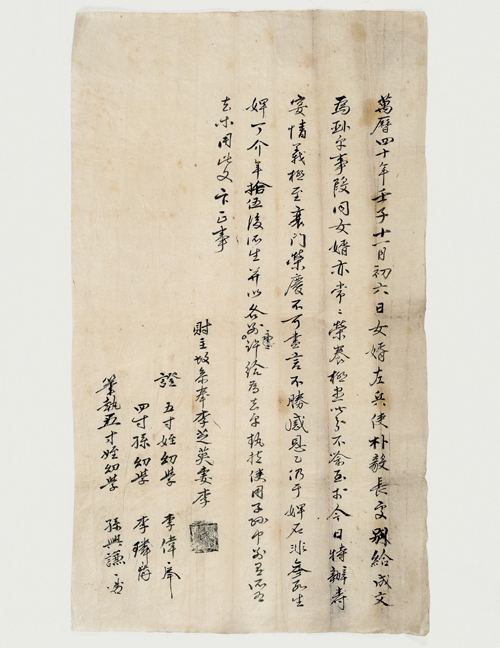 萬曆四十年壬子十一月初六日女婿左兵使朴毅長處別給成文
爲臥乎事段同女婿亦常常榮養極盡 不 今日特辦壽
宴情義極至衰門榮慶不可盡言不勝感恩乙仍于婢石非 生
婢丁介年拾伍後所生幷以 許給爲去乎執持使用子孫 所有
去等用此文卞正事
財主故 奉李芝英妻李
證 五寸姪幼學 李偉
四寸孫幼學 李璘
筆執五寸姪幼學 孫興謙